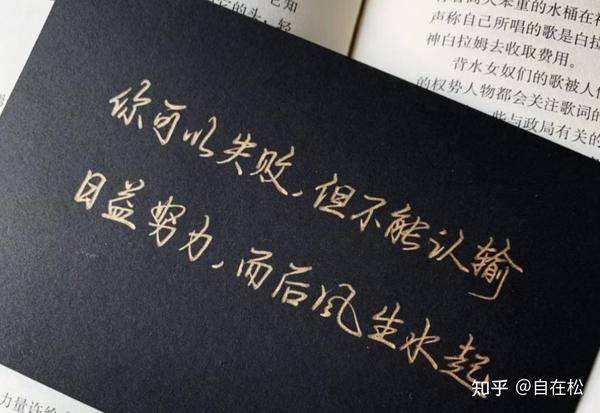 它知
它的头；轻
声称自己所唱的歌是白拉
神白拉姆去收取费用。
背水女奴们的歌被人
的权势人物都会关注歌词的
些与政局有关的
你可以失败，但不能认输
日益努力，而后风生水起
力量许给
知乎 @自在松